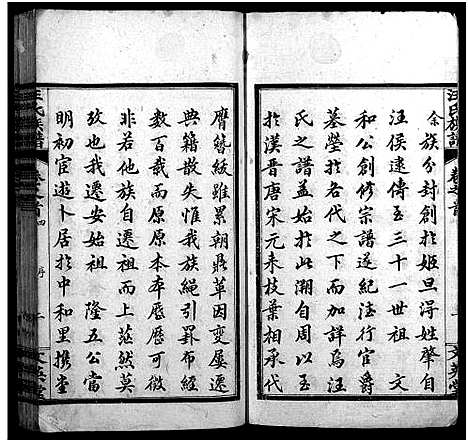 余族分封創於姬旦得姓肇自
汪侯逮傳五三十一世祖 文
和公創修宗譜遂紀法行官爵
墓塋於各代之下而加詳焉汪
氏之譜蓋始於溯自周以至
於漢晉唐宋元来枝葉相承代
膺紱雖累朝鼎革因變屢遷
典籍散失惟我族繩引罪布經
数百年而原原本本歷歷可微
非若他族自遷祖而上茫然莫
攷也我遷安始祖 隆五公當
明初宦遊卜居於中和里携堂
汪氏族譜 卷之首 序